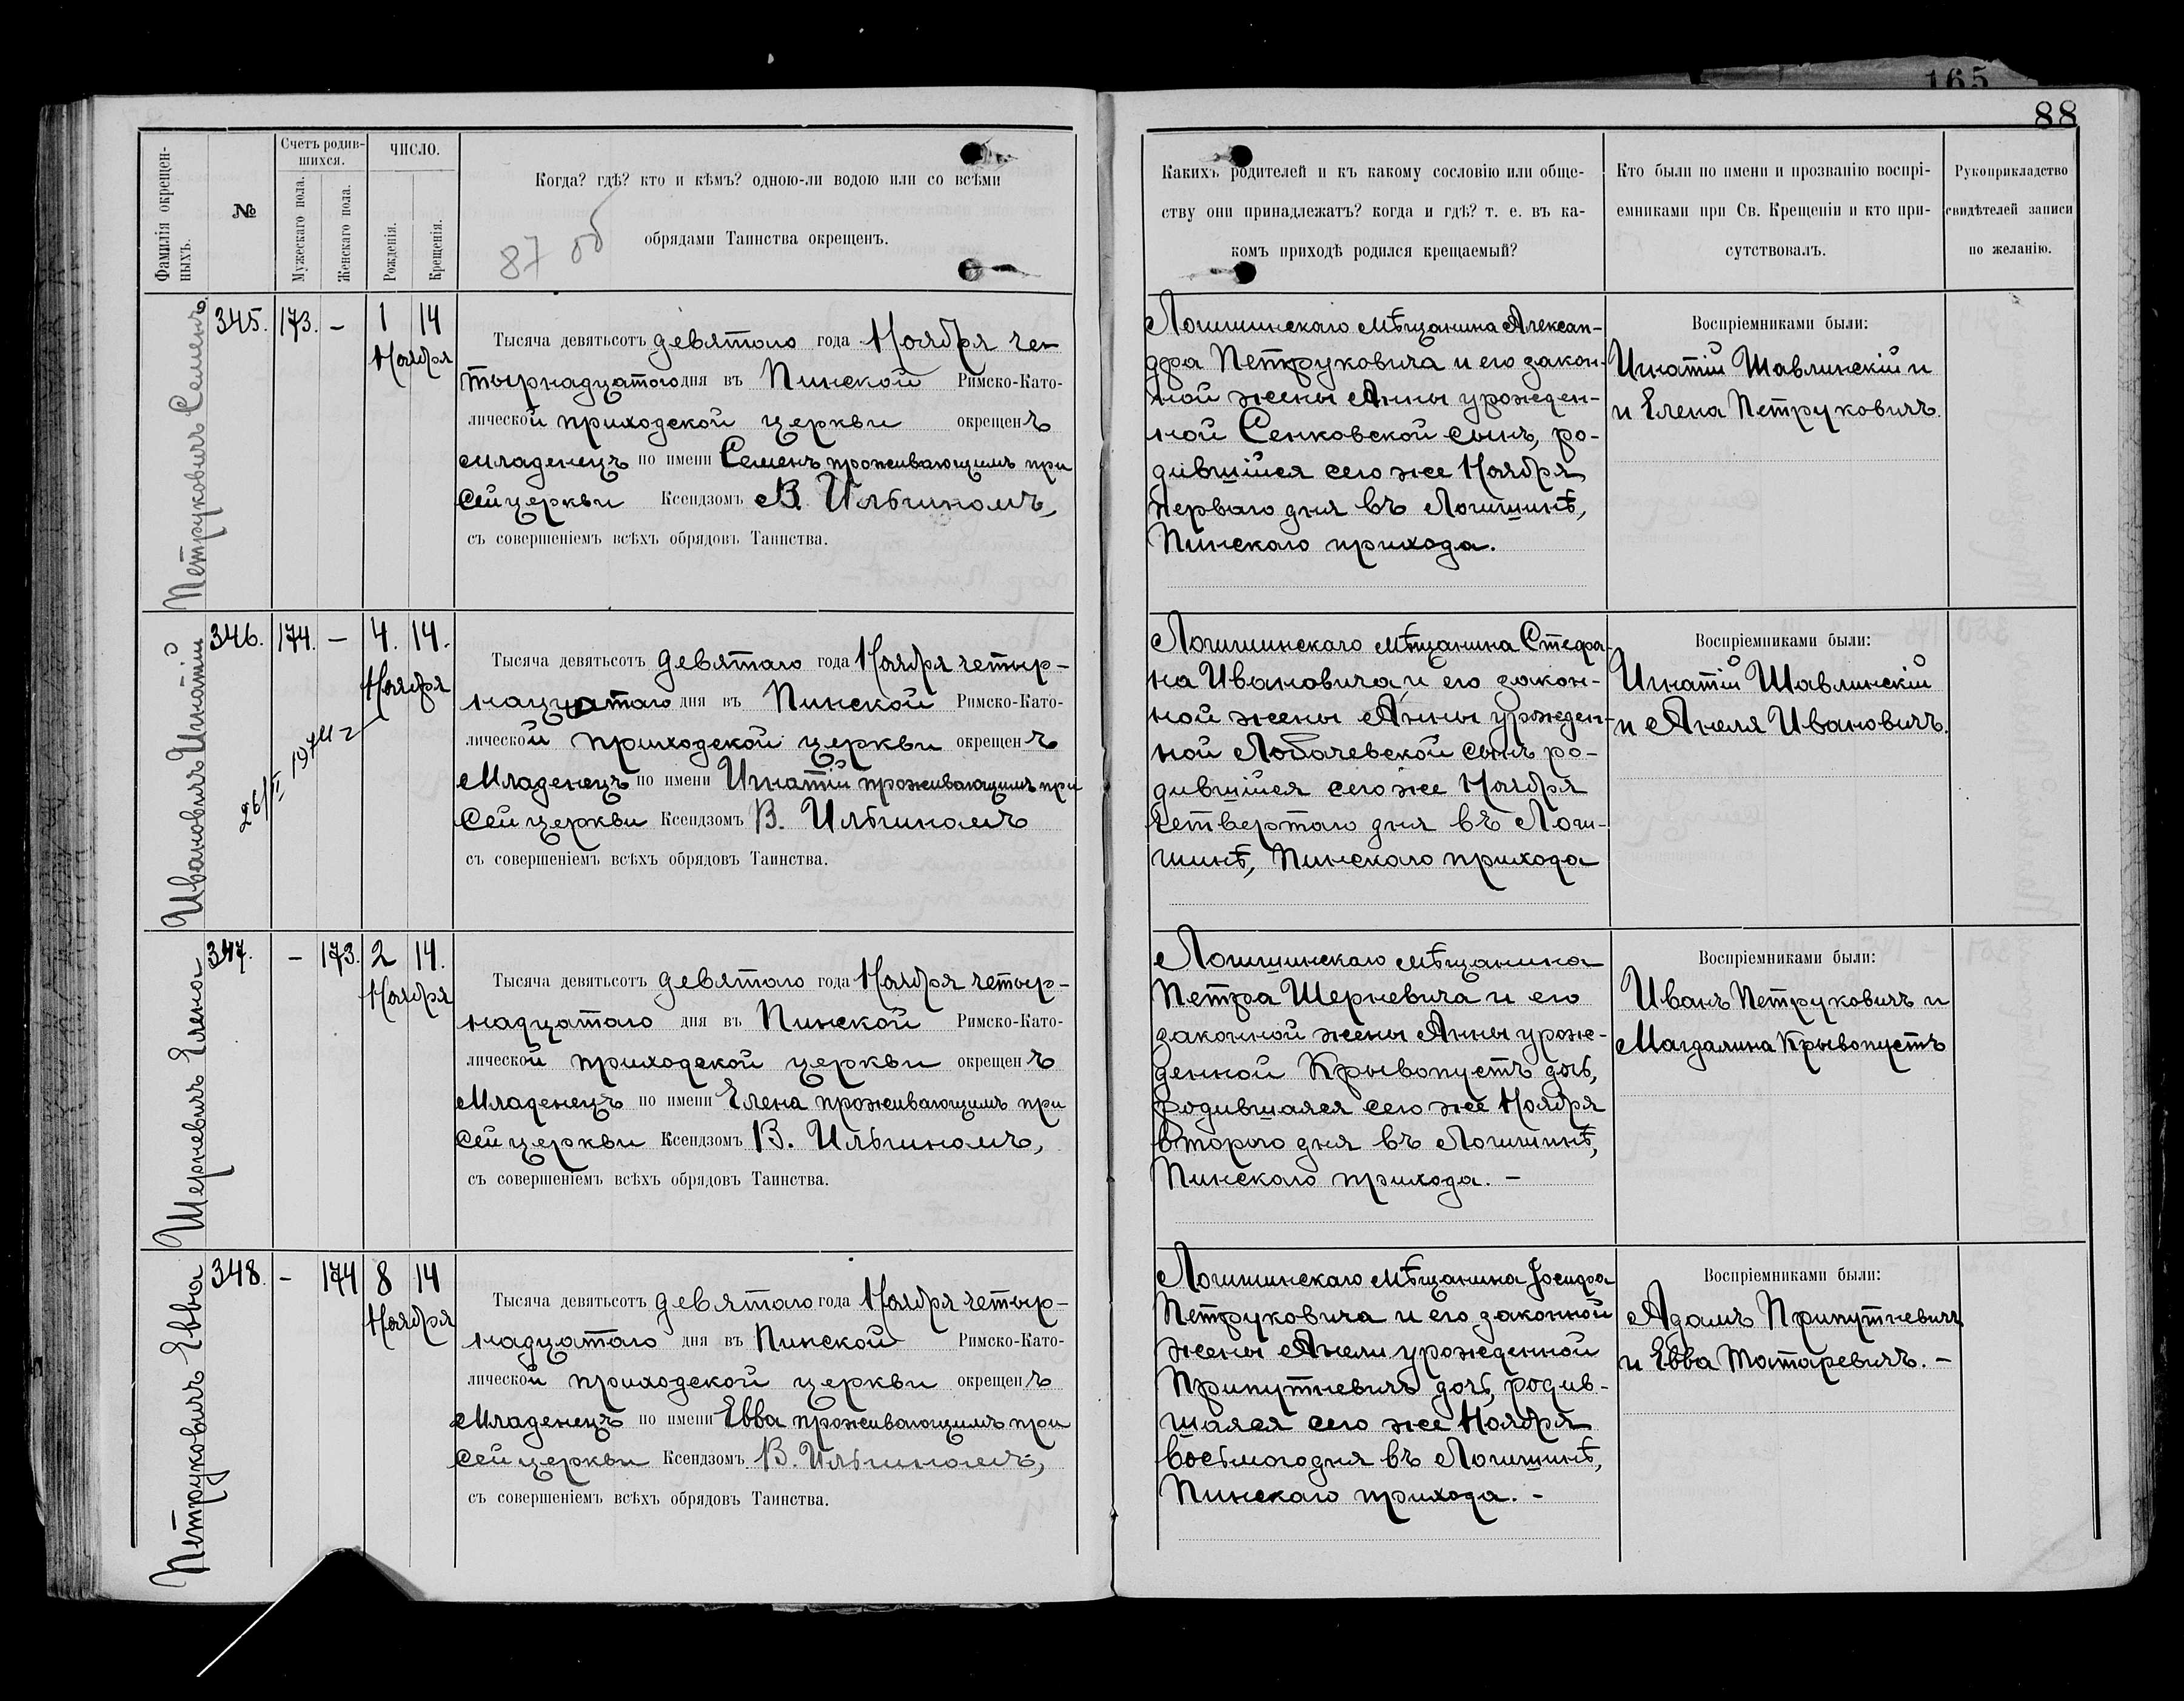 165
88
Фамилія окрещен-
ныхъ.
№
Счетъ родив-
шихся.
Мужескаго пола.
Женскаго пола.
ЧИСЛО.
Рожденія.
Крещенія.
Когда? гдѣ? кто и кѣмъ? одною-ли водою или со всѣми
обрядами Таинства окрещенъ.
87 об
Какихъ родителей и къ какому сословію или обще-
ству они принадлежатъ? когда и гдѣ? т. е. въ ка-
комъ приходѣ родился крещаемый?
Кто были по имени и прозванію воспрі-
емниками при Св. Крещеніи и кто при-
сутствовалъ.
Рукоприкладство
свидѣтелей записи
по желанію.
Петруковичъ Семенъ
345. 173. – 1 14
Ноября
Тысяча девятьсотъ девятаго года Ноября че-
тырнадцатого дня въ Пинской Римско-Като-
лической приходской церкви окрещенъ
младенецъ по имени Семенъ проживающимъ при
сей церкви Ксендзомъ В. Ильгиномъ,
съ совершеніемъ всѣхъ обрядовъ Таинства.
Логишинскаго мѣщанина Алексан-
дра Петруковича и его закон-
ной жены Анны урожден-
ной Сенковской сынъ, ро-
дившійся сего же Ноября
перваго дня въ Логишинѣ,
Пинскаго прихода.
Воспріемниками были:
Игнатій Шавлинскій и
и Елена Петруковичъ.
Ивановичъ Игнатій
346. 174. – 4. 14.
Ноября
26/II 1974 г
Тысяча девятьсотъ девятаго года Ноября четыр-
надцатаго дня въ Пинской Римско-Като-
лической приходской церкви окрещенъ
Младенецъ по имени Игнатій проживающимъ при
сей церкви Ксендзомъ В. Ильгиномъ
съ совершеніемъ всѣхъ обрядовъ Таинства.
Логишинскаго мѣщанина Стефа-
на Ивановича и его закон-
ной жены Анны урожден-
ной Лобачевской сынъ ро-
дившійся сего же Ноября
четвертаго дня въ Логи-
шинѣ, Пинскаго прихода
Воспріемниками были:
Игнатій Шавлинскій
и Анеля Ивановичъ.
Шерневичъ Елена
347. – 173. 2 14.
Ноября
Тысяча девятьсотъ девятаго года Ноября четыр-
надцатаго дня въ Пинской Римско-Като-
лической приходской церкви окрещенъ
Младенецъ по имени Елена проживающимъ при
сей церкви Ксендзомъ В. Ильгиномъ,
съ совершеніемъ всѣхъ обрядовъ Таинства.
Логишинскаго мѣщанина
Петра Шерневича и его
законной жены Анны урож-
денной Крывопустъ дочь,
родившаяся сего же Ноября
второго дня въ Логишинѣ,
Пинскаго прихода. –
Воспріемниками были:
Иванъ Петруковичъ и
Магдалина Крывопустъ
Петруковичъ Евва
348. – 174 8 14
Ноября
Тысяча девятьсотъ девятаго года Ноября четыр-
надцатаго дня въ Пинской Римско-Като-
лической приходской церкви окрещенъ
Младенецъ по имени Евва проживающимъ при
сей церкви Ксендзомъ В. Ильгиномъ,
съ совершеніемъ всѣхъ обрядовъ Таинства.
Логишинскаго мѣщанина Іосифа
Петруковича и его законной
жены Анели урожденной
Припутневичъ дочь, родив-
шаяся сего же Ноября
восьмого дня въ Логишинѣ,
Пинскаго прихода. –
Воспріемниками были:
Адамъ Припутневичъ
и Евва Татаревичъ. –